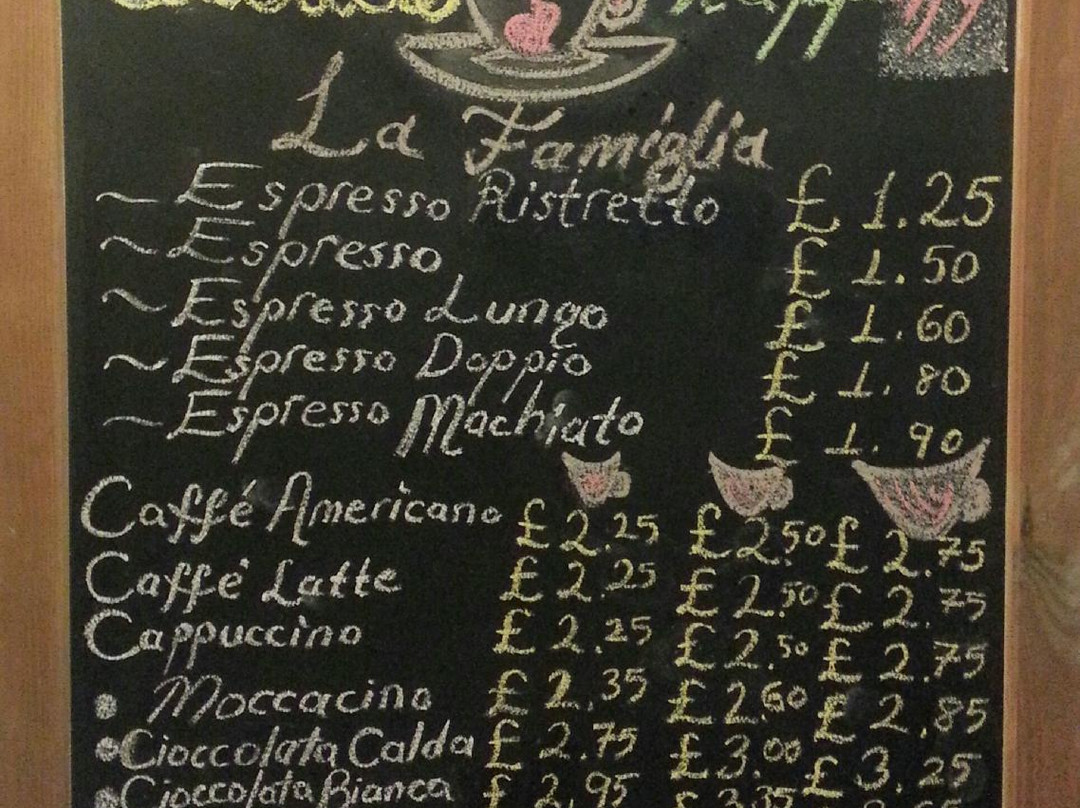 La Famiglia
~ Espresso Ristretto £ 1.25
~ Espresso £ 1.50
~ Espresso Lungo £ 1.60
~ Espresso Doppio £ 1.80
~ Espresso Machiato £ 1.90
Caffé Americano £ 2.25 £ 2.50 £ 2.75
Caffé Latte £ 2.25 £ 2.50 £ 2.75
Cappuccino £ 2.25 £ 2.50 £ 2.75
• Moccacino £ 2.35 £ 2.60 £ 2.85
• Cioccolata Calda £ 2.75 £ 3.00 £ 3.25
• Cioccolata Bianca £ 2.95 £ 3.35